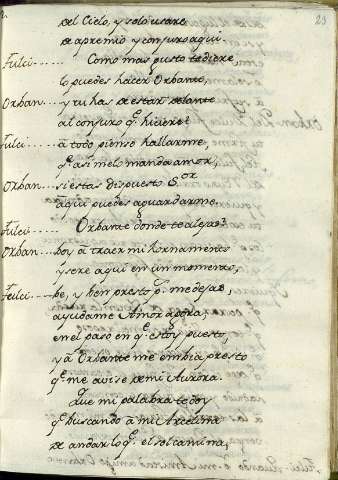 23
del Cielo, y solo usare
de apremio y conjuro aqui.
Fulci...... Como mas gusto te diere
lo puedes hacer Orbante,
Orban... y tu has de estar delante
al conjuro q.e hiciere?
Fulci.... à todo pienso hallarme,
q.e asi me lo manda amor,
Orban... si estas dispuesto S.or
aqui puedes aguardarme.
Fulci..... Orbante donde te alejas?
Orban... boy à traer mi
y sere aqui en un momento,
Felci.... be, y ben presto q.e me dejas,
ayudame Amor agora,
en el paso en q.e estoy puesto,
y à Orbante me embia presto
q.e me avise de mi Aurora.
Que mi palabra te doy
q.e buscando à mi Arcelina
de andar lo q.e el sol camina,